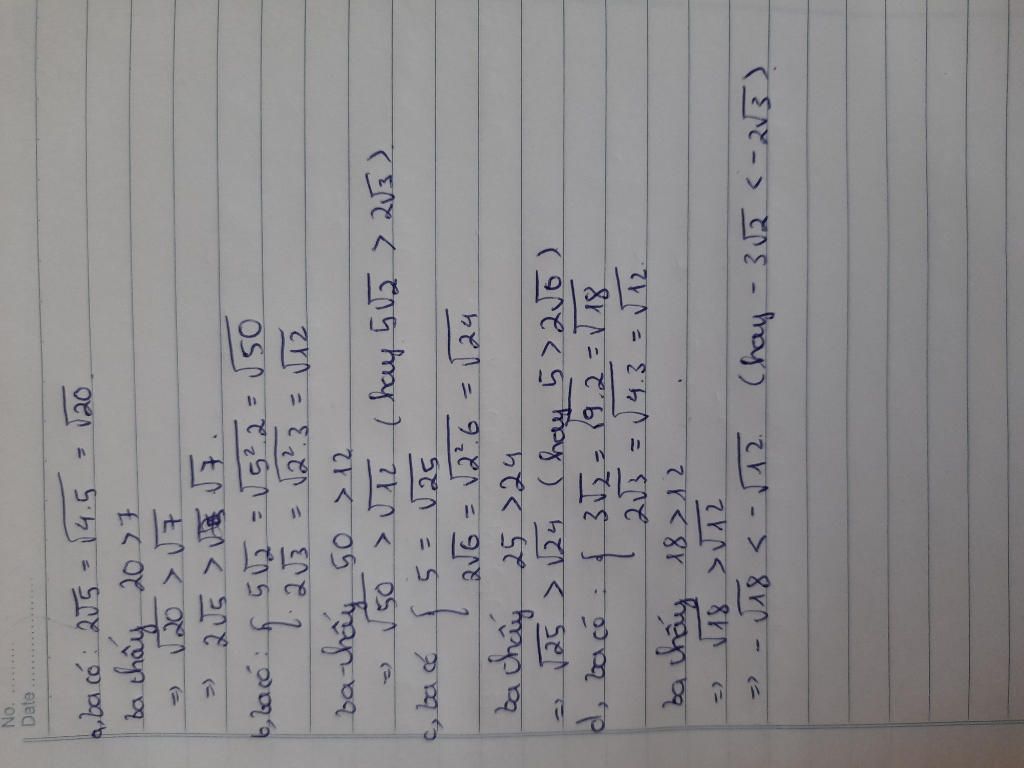 No. ..............
Date ..............
a, Ta có: 2√5 = √4.5 = √20
Ta thấy 20 > 7
=> √20 > √7
=> 2√5 > √7.
b, Ta có: { 5√2 = √5².2 = √50
2√3 = √2².3 = √12
Ta thấy 50 > 12
=> √50 > √12 (hay 5√2 > 2√3)
c, Ta có { 5 = √25
2√6 = √2².6 = √24
Ta thấy 25 > 24
=> √25 > √24 (hay 5 > 2√6)
d, Ta có: { 3√2 = √9.2 = √18
2√3 = √4.3 = √12
Ta thấy 18 > 12
=> √18 > √12
=> -√18 < -√12 (hay -3√2 < -2√3)